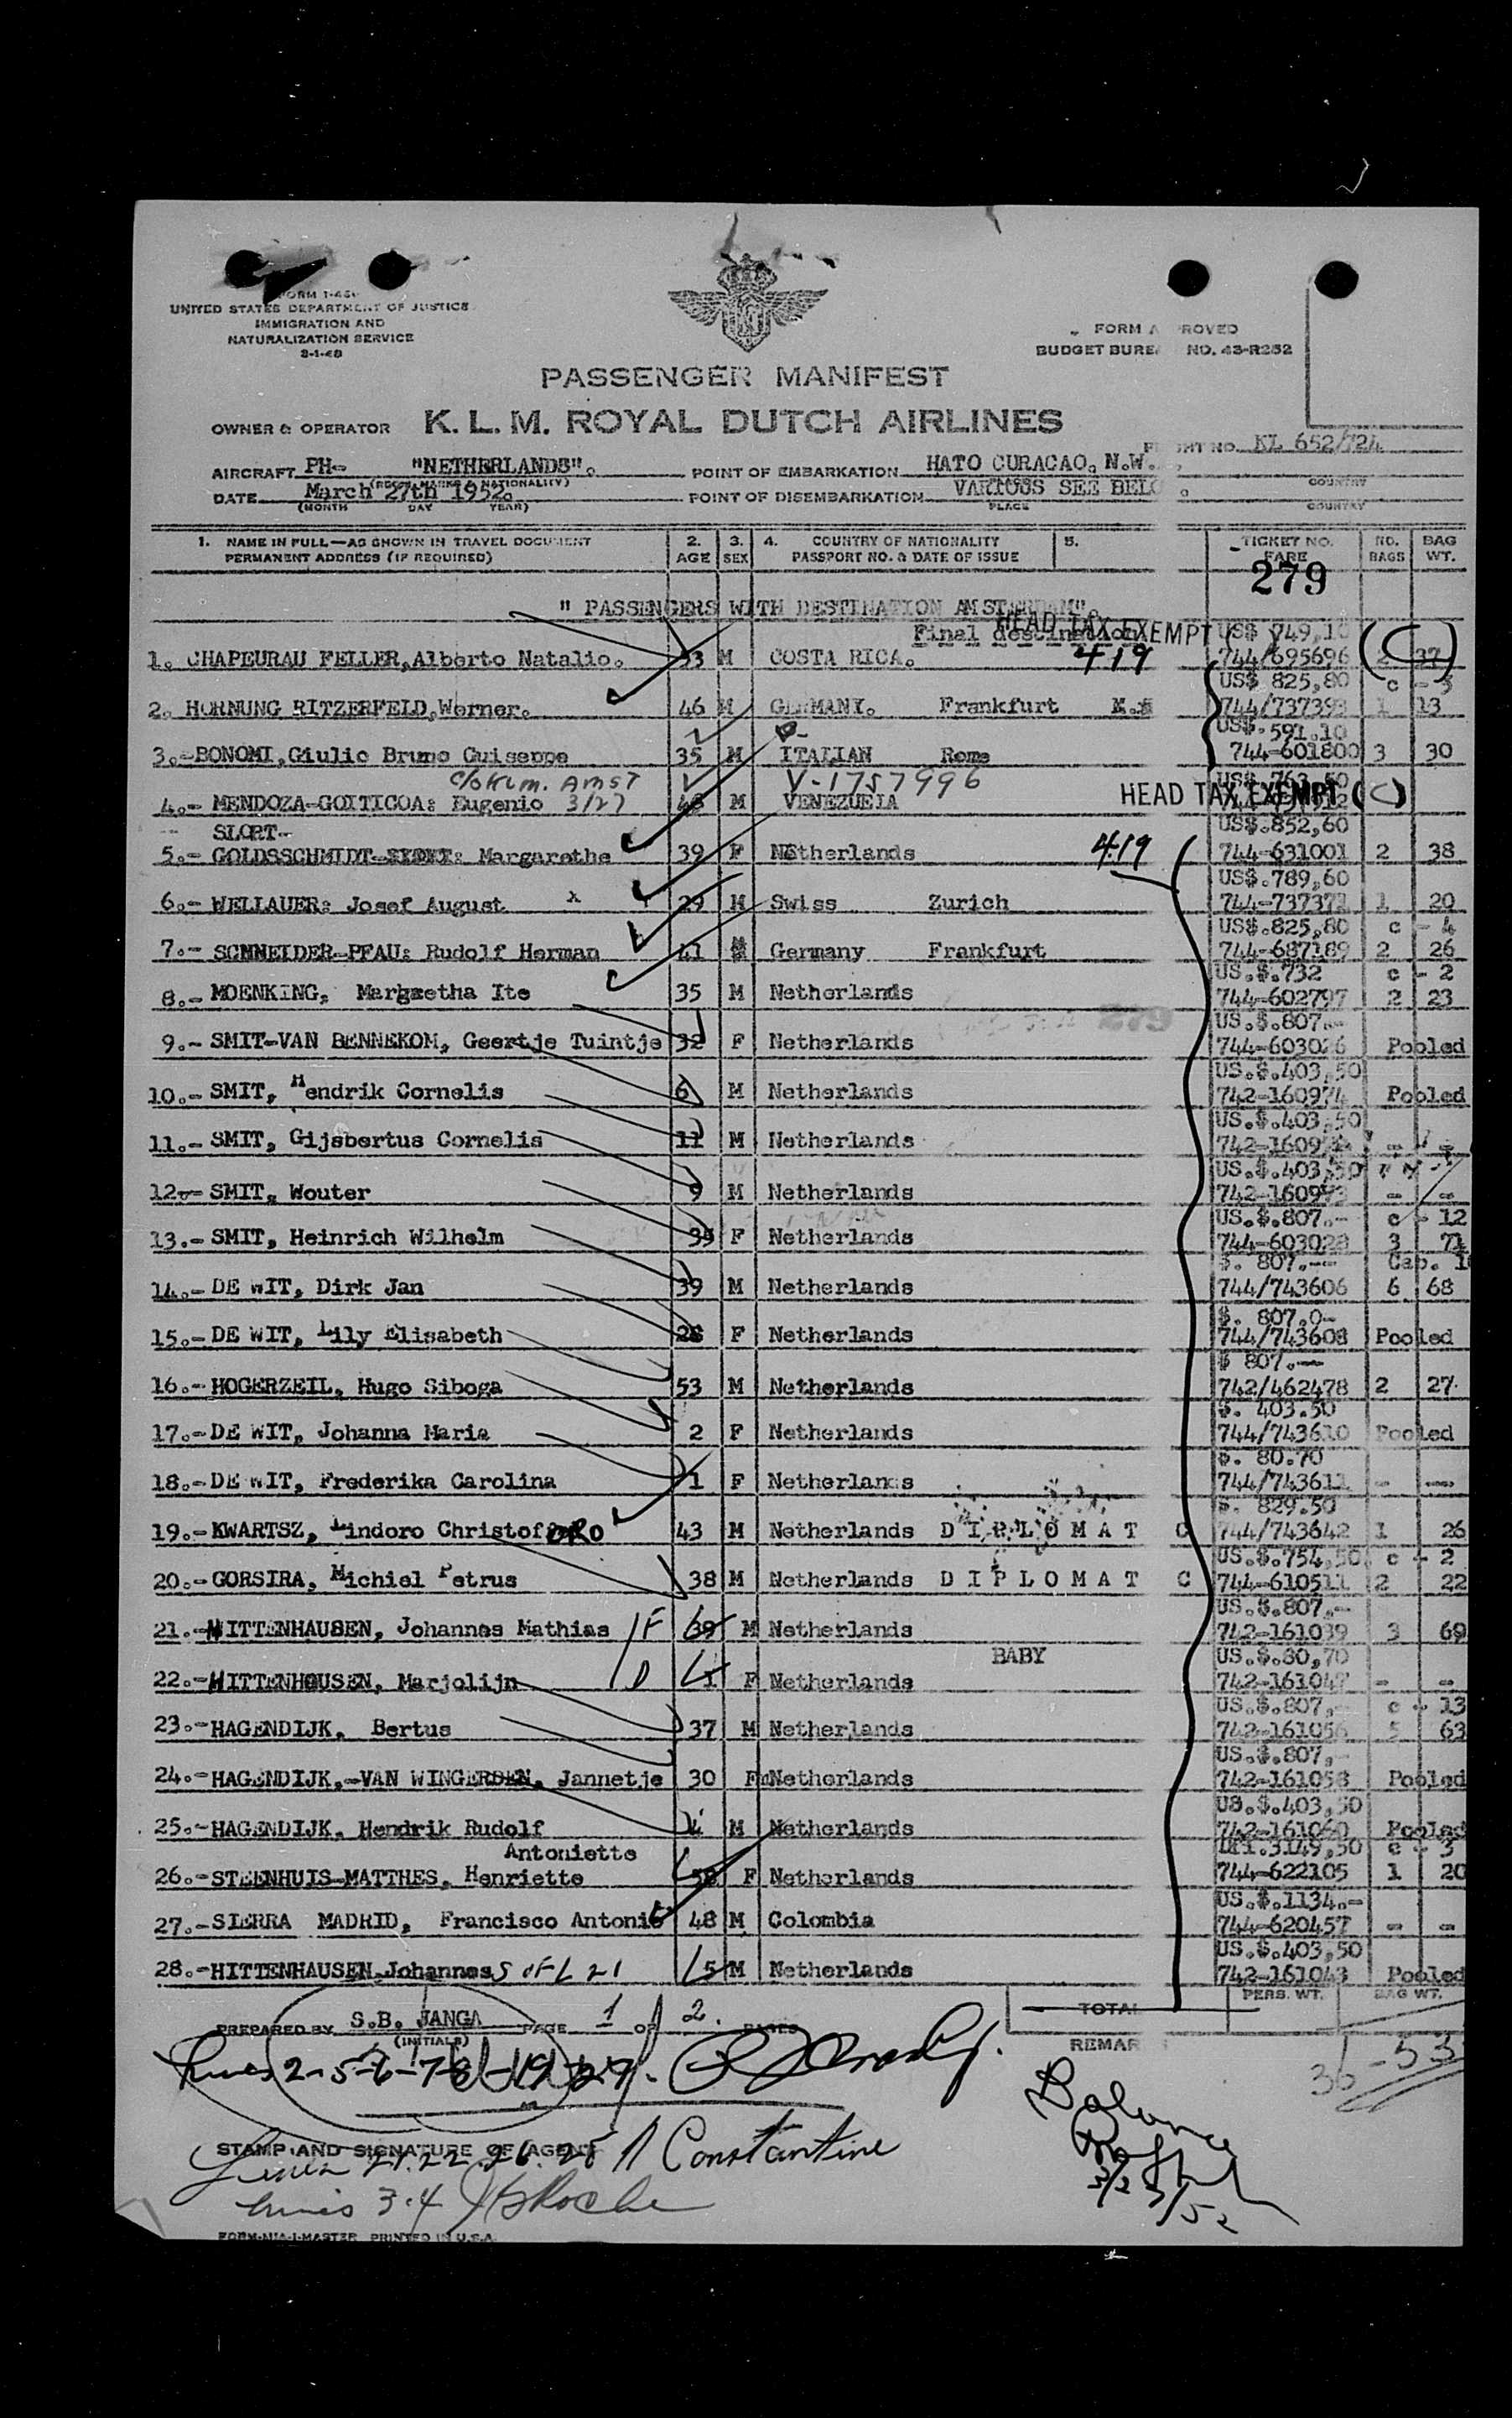 FORM I-
UNITED STATES DEPARTMENT OF JUSTICE
IMMIGRATION AND
NATURALIZATION SERVICE
FORM A PROVED
BUDGET BUREA NO. 43-R252
PASSENGER MANIFEST
OWNER & OPERATOR K. L. M. ROYAL DUTCH AIRLINES
NO. KL 652/724
AIRCRAFT PH- "NETHERLANDS". POINT OF EMBARKATION HATO CURACAO, N.W.
(REGN. MARKS & NATIONALITY) COUNTRY
DATE March 27th 1952. POINT OF DISEMBARKATION VARIOUS SEE BELO
(MONTH DAY YEAR) PLACE COUNTRY
1. NAME IN FULL—AS SHOWN IN TRAVEL DOCUMENT 2. 3. 4. COUNTRY OF NATIONALITY 5. TICKET NO. NO. BAG
PERMANENT ADDRESS (IF REQUIRED) AGE SEX PASSPORT NO. & DATE OF ISSUE FARE BAGS WT.
279
" PASSENGERS WITH DESTINATION AMSTERDAM".
Final destination HEAD TAX EXEMPT US$ 749,10
1. CHAPEURAU FELLER,Alberto Natalio. 33 M COSTA RICA. 419 744/695696 2 37 (C)
US$ 825,80 c - 3
2. HORNUNG RITZERFELD,Werner. 46 M GERMANY. Frankfurt 744/737393 1 13
US$.591.10
3.-BONOMI,Giulio Bruno Guiseppe 35 M ITALIAN Rome 744-601800 3 30
c/o KLM. AMST V-1757996 US$ 763,50
4.- MENDOZA-GOITICOA: Eugenio 3/27 48 M VENEZUELA HEAD TAX EXEMPT (C)
SLORT- US$.852,60
5.- GOLDSSCHMIDT- : Margarethe 39 F Netherlands 419 744-631001 2 38
US$.789,60
6.- WELLAUER: Josef August x 29 M Swiss Zurich 744-737371 1 20
US$.825,80 c - 4
7.- SCHNEIDER-PFAU: Rudolf Herman 41 M Germany Frankfurt 744-687189 2 26
US.$.732 c - 2
8.- MOENKING, Margretha Ite 35 M Netherlands 744-602797 2 23
279 US.$.807.-
9.- SMIT-VAN BENNEKOM, Geertje Tuintje 32 F Netherlands 744-603026 Pooled
US.$.403,50
10.- SMIT, Hendrik Cornelis 6 M Netherlands 742-160974 Pooled
US.$.403,50
11.- SMIT, Gijsbertus Cornelis 11 M Netherlands
US.$.403,50
12.- SMIT, Wouter 9 M Netherlands 742-160973 - -
US.$.807.- c - 12
13.- SMIT, Heinrich Wilhelm 39 F Netherlands 744-603028 3 71
$. 807.-- Cab.
14.- DE WIT, Dirk Jan 39 M Netherlands 744/743606 6 68
$. 807.0-
15.- DE WIT, Lily Elisabeth 28 F Netherlands 744/743608 Pooled
$ 807.--
16.- HOGERZEIL, Hugo Siboga 53 M Netherlands 742/462478 2 27
$. 403.50
17.- DE WIT, Johanna Maria 2 F Netherlands 744/743610 Pooled
$. 80.70
18.- DE WIT, Frederika Carolina 1 F Netherlands 744/743611 - --
$. 829.50
19.- KWARTSZ, Lindoro Christoffo ORO 43 M Netherlands D I P L O M A T C 744/743642 1 26
US.$.754,50 c - 2
20.- GORSIRA, Michiel Petrus 38 M Netherlands D I P L O M A T C 744-610511 2 22
US.$.807,-
21.-HITTENHAUSEN, Johannes Mathias F 39 M Netherlands 742-161039 3 69
BABY US.$.80,70
22.-HITTENHOUSEN, Marjolijn D 1 F Netherlands 742-161047 - -
US.$.807,- c - 13
23.-HAGENDIJK, Bertus 37 M Netherlands 742-161056 5 63
US.$.807,-
24.-HAGENDIJK,-VAN WINGERDEN, Jannetje 30 F Netherlands 742-161058 Pooled
US.$.403,50
25.-HAGENDIJK, Hendrik Rudolf 4 M Netherlands 742-161060 Pooled
Antoniette 3149,50 c - 3
26.-STEENHUIS-MATTHES, Henriette 58 F Netherlands 744-622105 1 20
US.$.1134.-
27.-SIERRA MADRID, Francisco Antonio 48 M Colombia 744-620457 - -
US.$.403,50
28.-HITTENHAUSEN,Johannes S of L 21 5 M Netherlands 742-161043 Pooled
PERS. WT. BAG WT.
PREPARED BY S.B. JANGA PAGE 1 OF 2. PAGES TOTAL
(INITIALS) REMAR
Lines 2-5-6-7-8-19-27.
36-53
STAMP AND SIGNATURE OF AGENT
Lines 21.22.26.28 Constantine
Lines 3.4
3/27/52
FORM-MIA-1-MASTER PRINTED IN U.S.A.